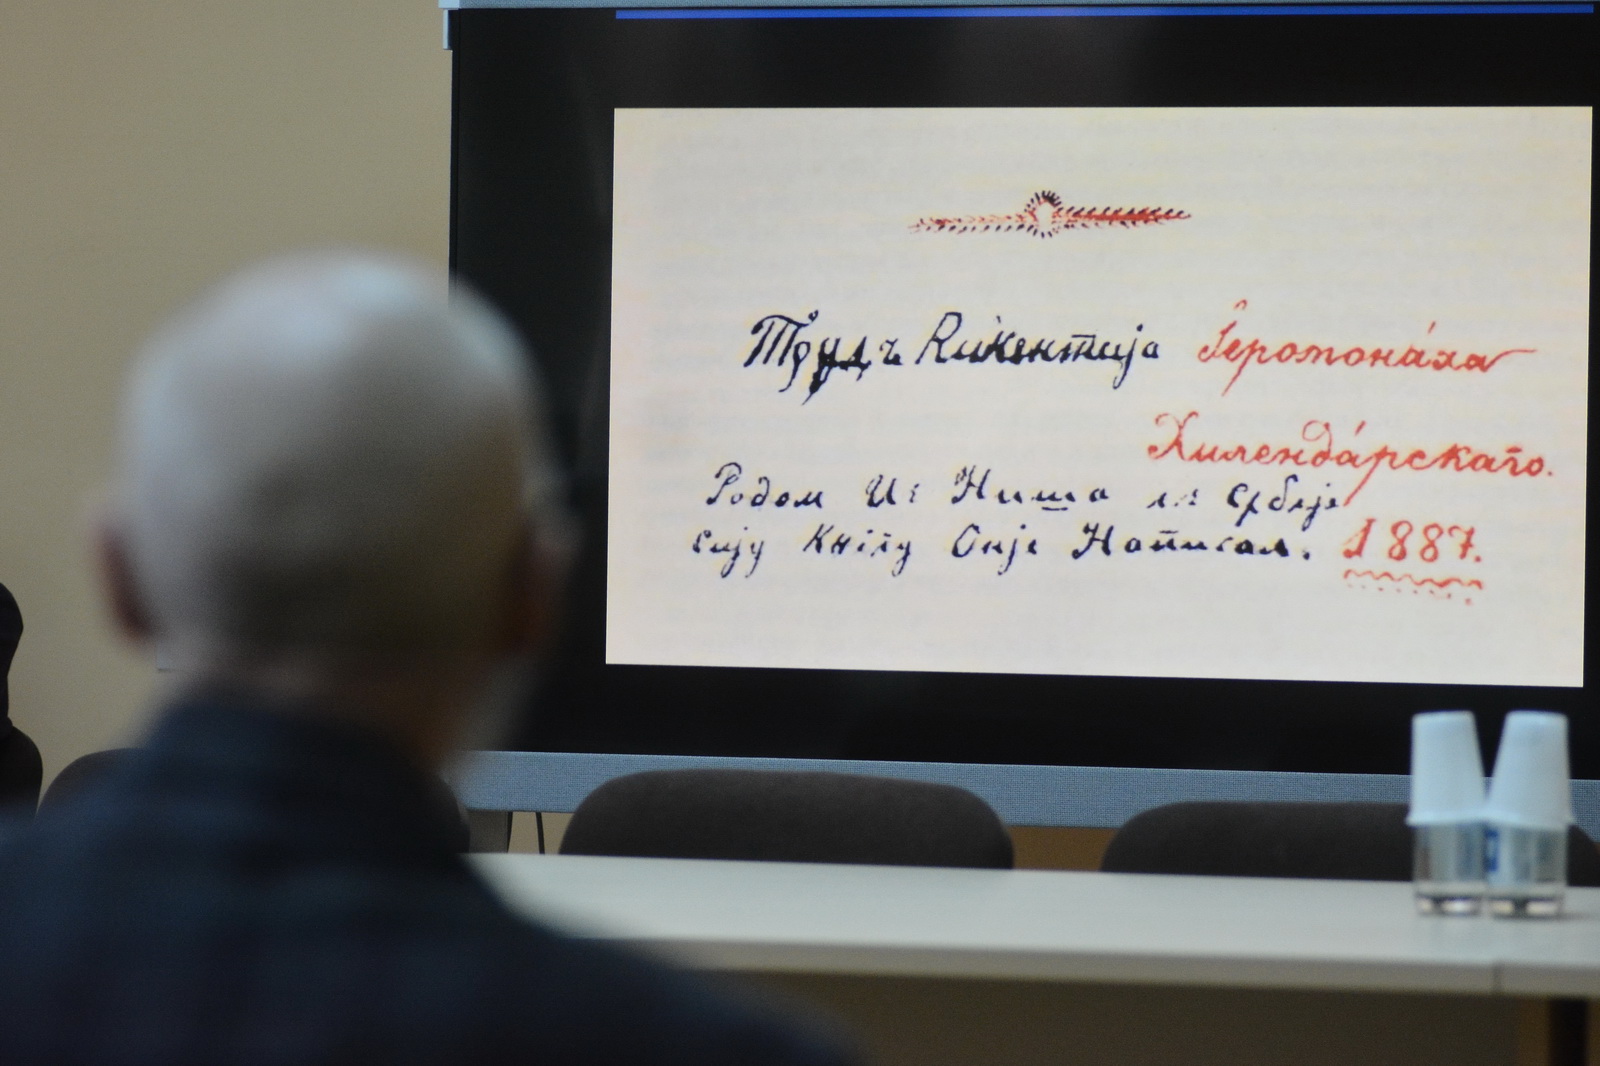 Трудъ Викентија Іеромона́ха
Хиленда́рскаго.
Родом Из Ниша из Србије
сију Књигу Онје Написал. 1887.